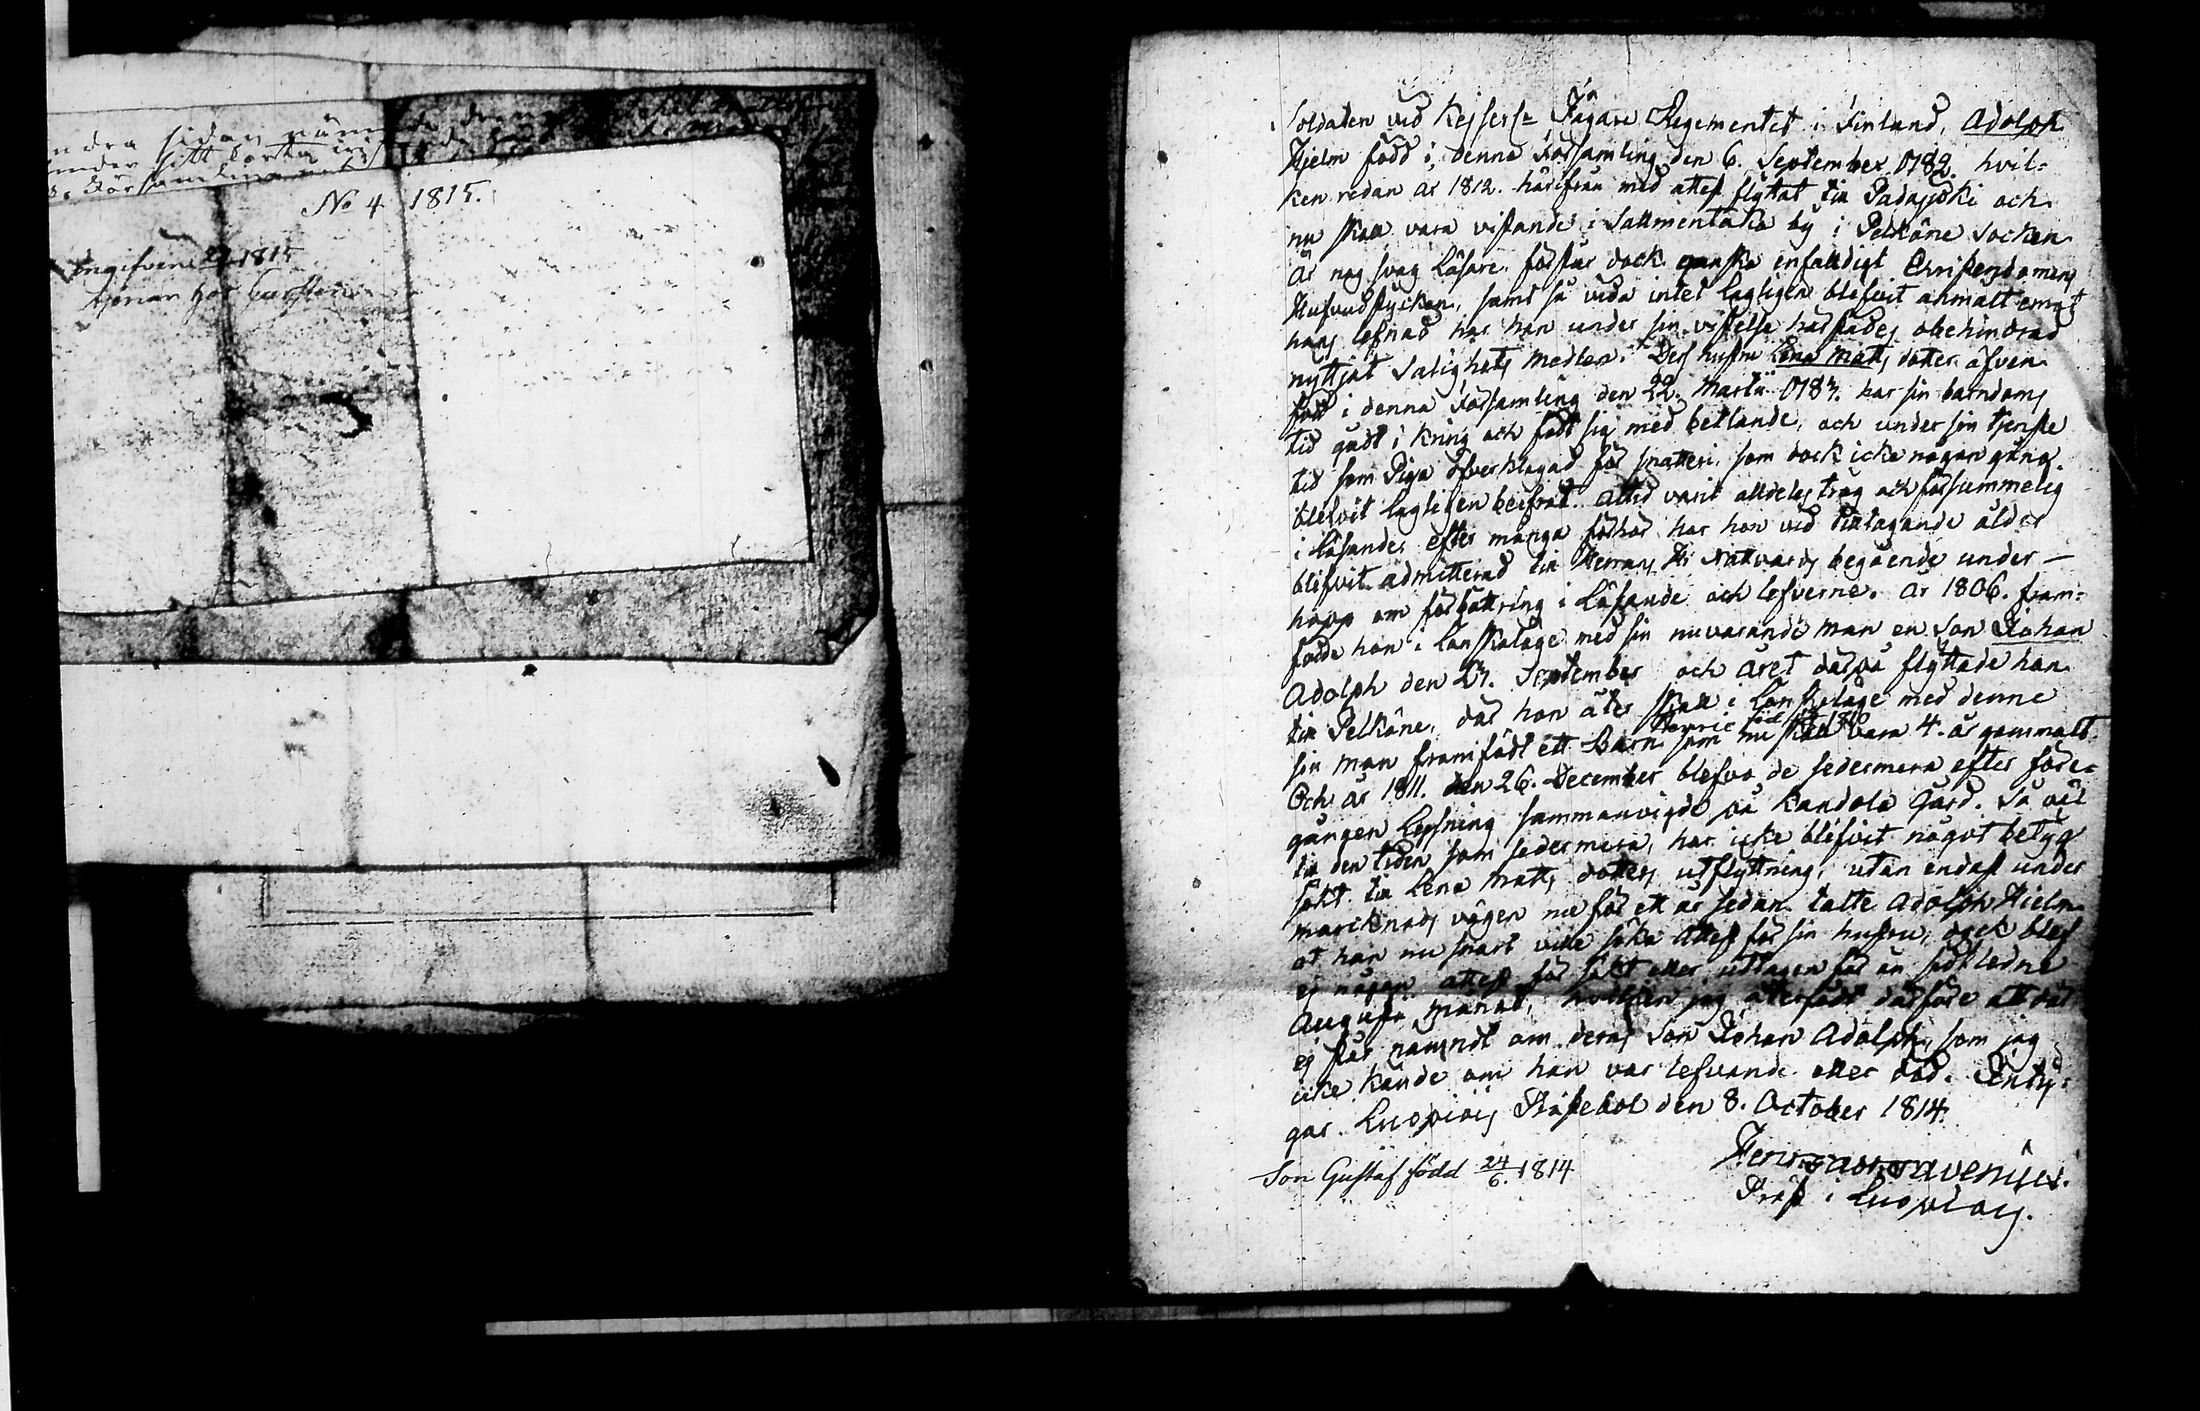 ndra sidan nämnde dreng
under sitt korta
församling
No 4 1815.
Ingifven 1815
tjenar hos
Soldaten vid Kejserl= Jägare Regementet i Finland, Adolph
Hjelm född i denna Församling den 6. September 1782. hvil=
ken redan år 1812. härifrån med attest flyttat till Padasjoki och
nu skall vara vistande i Salmentaka by i Pelkäne Socken
Är nog svag Läsare, förstår dock ganska enfaldigt Christendomens
Hufvudstycken, samt så vida intet lagligen blifvit anmält emot
hans lefnad har han under sin vistelse härstädes obehindrad
nyttjat Salighets medlen. Dess hustru Lena Matts dotter äfven
född i denna Församling den 22. Martii 1787. har sin barndoms
tid gådt i kring och födt sig med betlande, och under sin tjenste
tid som Piga öfverklagad för snatteri, som dock icke någon gång
blifvit lagligen beifrat. Altid varit alldeles trög och försummelig
i läsande, efter många förhör har hon vid tilltagande ålder
blifvit admitterad till Herrans H: Nattvards begående under
hopp om förbättring i Läsande och lefverne. År 1806. fram=
födde hon i Lönskaläge med sin nuvarande man en Son Johan
Adolph den 27. September och året därpå flyttade hon
till Pelkäne, där hon åter skall i Lönskeläge med denne
Henric föd 1810
sin man framfödt ett Barn som nu skall vara 4. år gammalt.
Och år 1811. den 26. December blefvo de sedermera efter före=
gången Lysning sammanvigde på Kandola Gård. Så väl
till den tiden som sedermera, har icke blifvit något betyg
sökt till Lena Matts dotters utflyttning, utan endast under
marcknads vägen nu för ett år sedan talte Adolph Hjelm
at han nu snart ville söka Attest för sin hustru, dock blef
ej någon attest för sökt eller uttagen för än sidstledne
Augusti månad, hvilken jag återfådt därföre att där
ej står nämndt om deras Son Johan Adolph, som jag
icke kände om han var lefvande eller död. Bety=
gar Luopiois Prästebol den 8. October 1814.
Son Gustaf född 24/6. 1814
Präst i Luopiois.